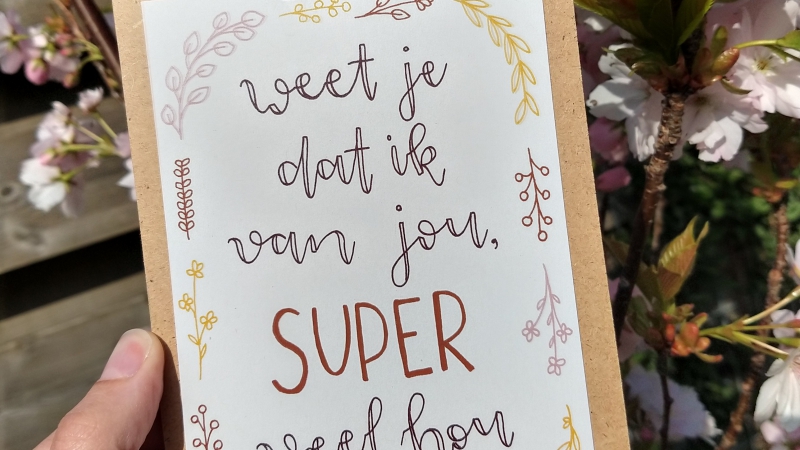 weet je
dat ik
van jou,
SUPER
veel hou